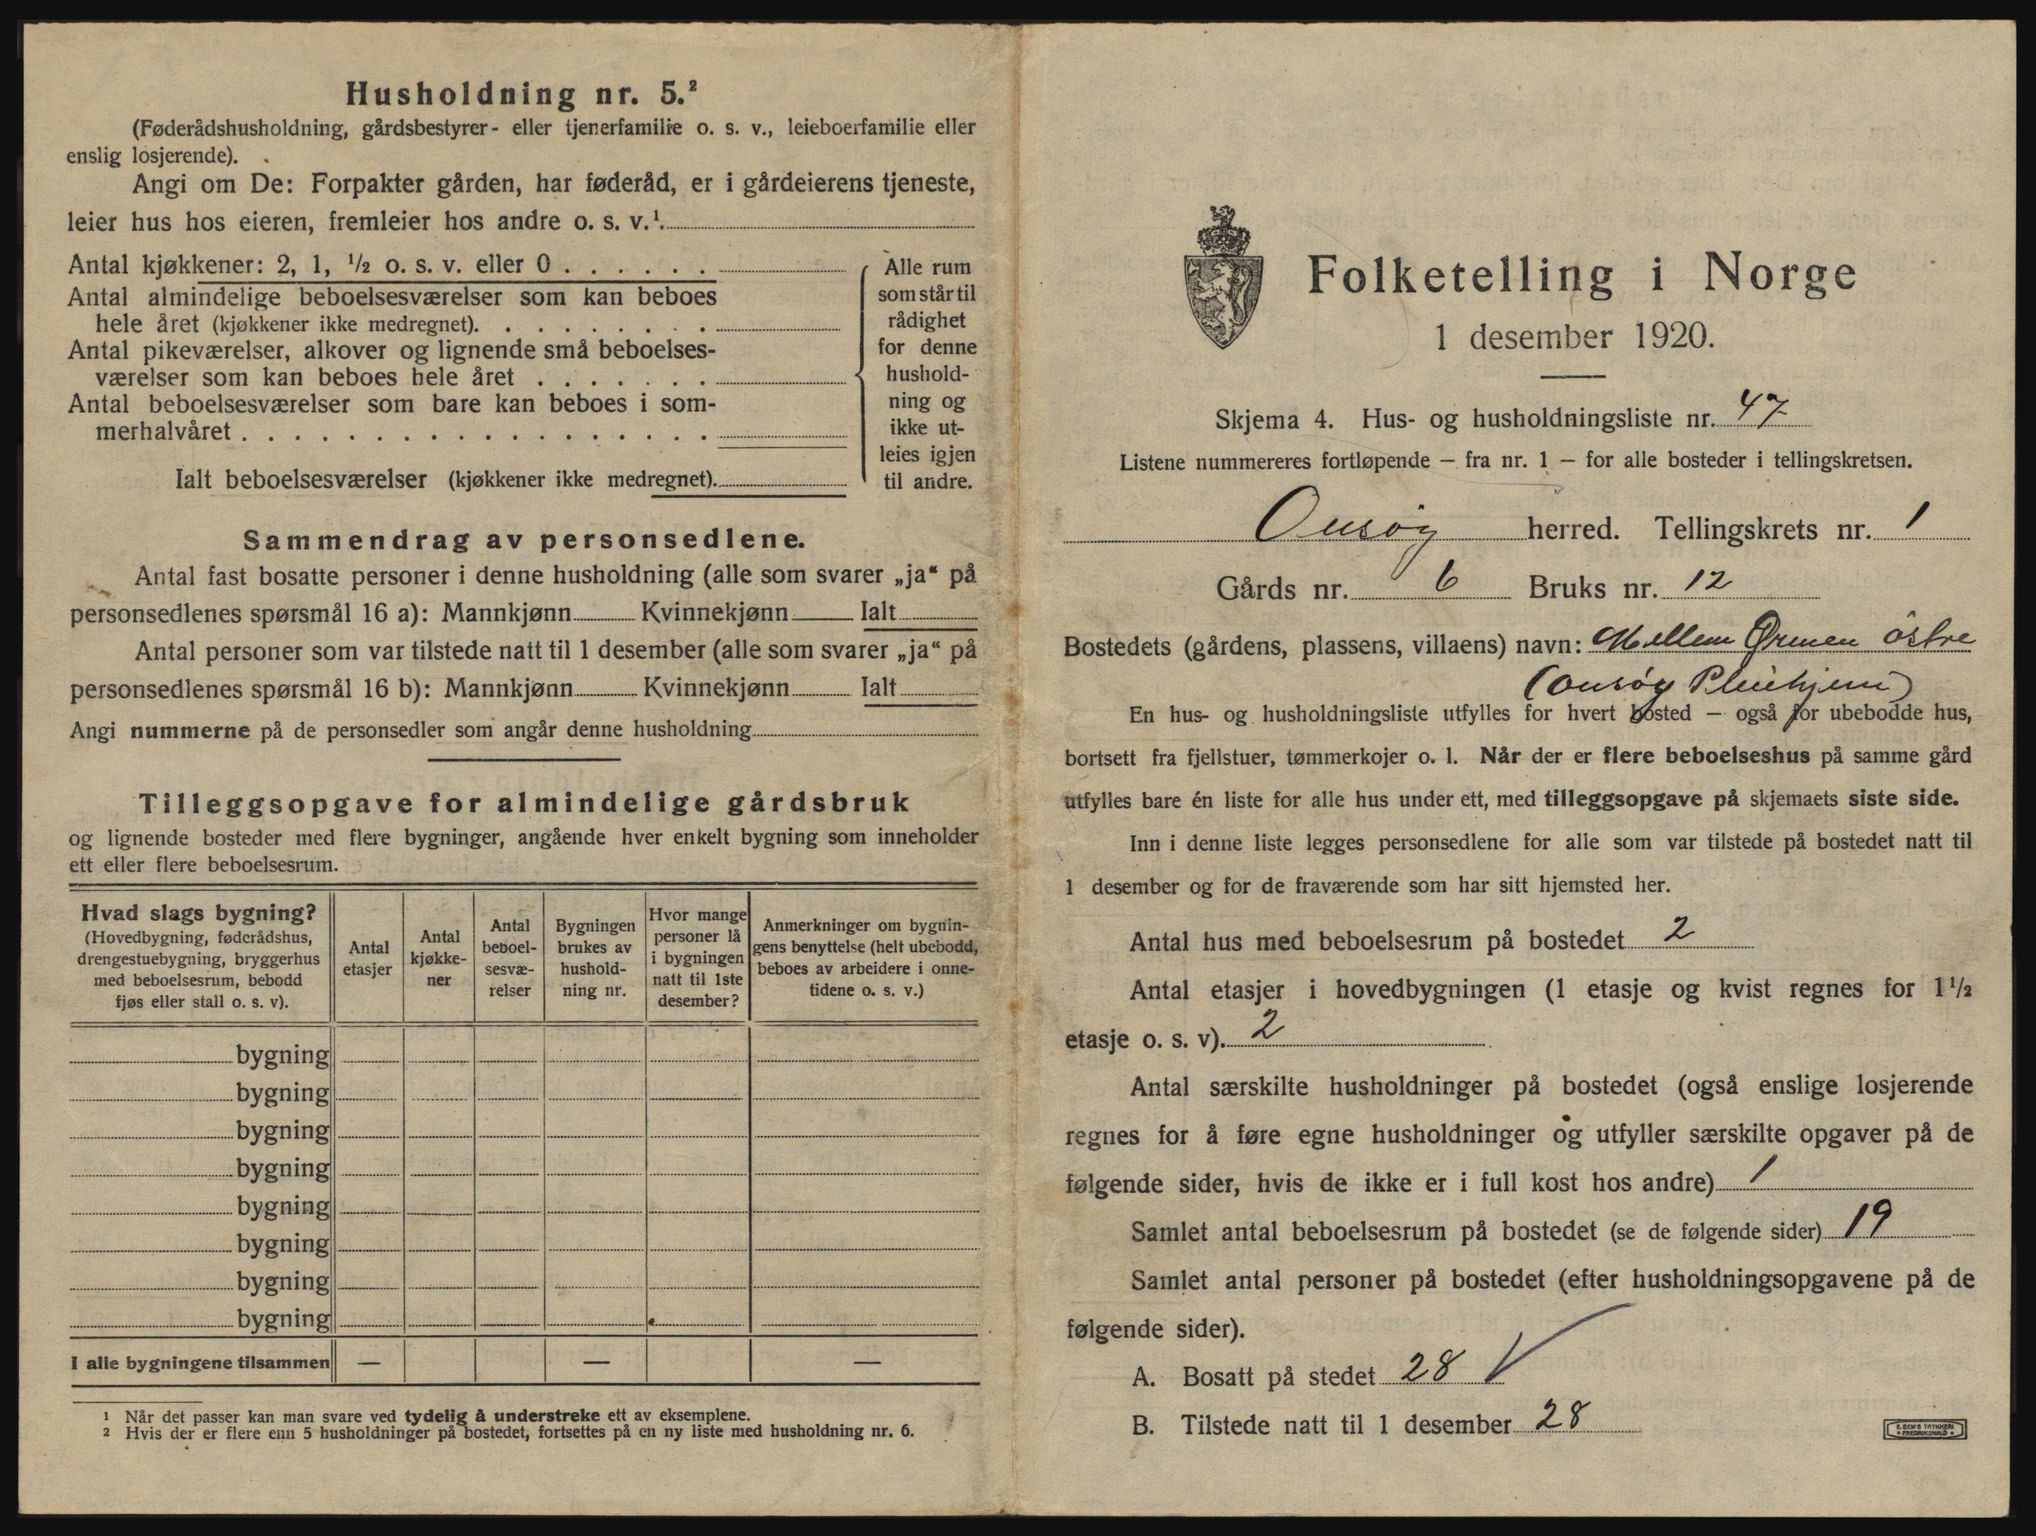 Husholdning nr. 5.²
(Føderådshusholdning, gårdsbestyrer- eller tjenerfamilie o. s. v., leieboerfamilie eller
enslig losjerende).
Angi om De: Forpakter gården, har føderåd, er i gårdeierens tjeneste,
leier hus hos eieren, fremleier hos andre o. s. v.¹.
Antal kjøkkener: 2, 1, ½ o. s. v. eller 0 . . . . . .
Antal almindelige beboelsesværelser som kan beboes
hele året (kjøkkener ikke medregnet). . . . . . . . .
Antal pikeværelser, alkover og lignende små beboelses-
værelser som kan beboes hele året . . . . . . .
Antal beboelsesværelser som bare kan beboes i som-
merhalvåret . . . . . . . . . . . . . . . . . .
Ialt beboelsesværelser (kjøkkener ikke medregnet).
Alle rum
som står til
rådighet
for denne
hushold-
ning og
ikke ut-
leies igjen
til andre.
Sammendrag av personsedlene.
Antal fast bosatte personer i denne husholdning (alle som svarer „ja“ på
personsedlenes spørsmål 16 a): Mannkjønn Kvinnekjønn Ialt
Antal personer som var tilstede natt til 1 desember (alle som svarer „ja“ på
personsedlenes spørsmål 16 b): Mannkjønn Kvinnekjønn Ialt
Angi nummerne på de personsedler som angår denne husholdning
Tilleggsopgave for almindelige gårdsbruk
og lignende bosteder med flere bygninger, angående hver enkelt bygning som inneholder
ett eller flere beboelsesrum.
Hvad slags bygning?
(Hovedbygning, føderådshus,
drengestuebygning, bryggerhus
med beboelsesrum, bebodd
fjøs eller stall o. s. v).
Antal
etasjer
Antal
kjøkke-
ner
Antal
beboel-
sesvæ-
relser
Bygningen
brukes av
hushold-
ning nr.
Hvor mange
personer lå
i bygningen
natt til 1ste
desember?
Anmerkninger om bygnin-
gens benyttelse (helt ubebodd,
beboes av arbeidere i onne-
tidene o. s. v.)
bygning
bygning
bygning
bygning
bygning
bygning
bygning
bygning
I alle bygningene tilsammen — — —
¹ Når det passer kan man svare ved tydelig å understreke ett av eksemplene.
² Hvis der er flere enn 5 husholdninger på bostedet, fortsettes på en ny liste med husholdning nr. 6.
Folketelling i Norge
1 desember 1920.
Skjema 4. Hus- og husholdningsliste nr. 47
Listene nummereres fortløpende — fra nr. 1 — for alle bosteder i tellingskretsen.
Onsøy herred. Tellingskrets nr. 1
Gårds nr. 6 Bruks nr. 12
Bostedets (gårdens, plassens, villaens) navn: Mellem Ørmen östre
(Onsøy Pleiehjem)
En hus- og husholdningsliste utfylles for hvert bosted — også for ubebodde hus,
bortsett fra fjellstuer, tømmerkojer o. l. Når der er flere beboelseshus på samme gård
utfylles bare én liste for alle hus under ett, med tilleggsopgave på skjemaets siste side.
Inn i denne liste legges personsedlene for alle som var tilstede på bostedet natt til
1 desember og for de fraværende som har sitt hjemsted her.
Antal hus med beboelsesrum på bostedet 2
Antal etasjer i hovedbygningen (1 etasje og kvist regnes for 1½
etasje o. s. v). 2
Antal særskilte husholdninger på bostedet (også enslige losjerende
regnes for å føre egne husholdninger og utfyller særskilte opgaver på de
følgende sider, hvis de ikke er i full kost hos andre) 1
Samlet antal beboelsesrum på bostedet (se de følgende sider) 19
Samlet antal personer på bostedet (efter husholdningsopgavene på de
følgende sider).
A. Bosatt på stedet 28
B. Tilstede natt til 1 desember 28
E. SEM'S TRYKKERI
FREDRIKSHALD